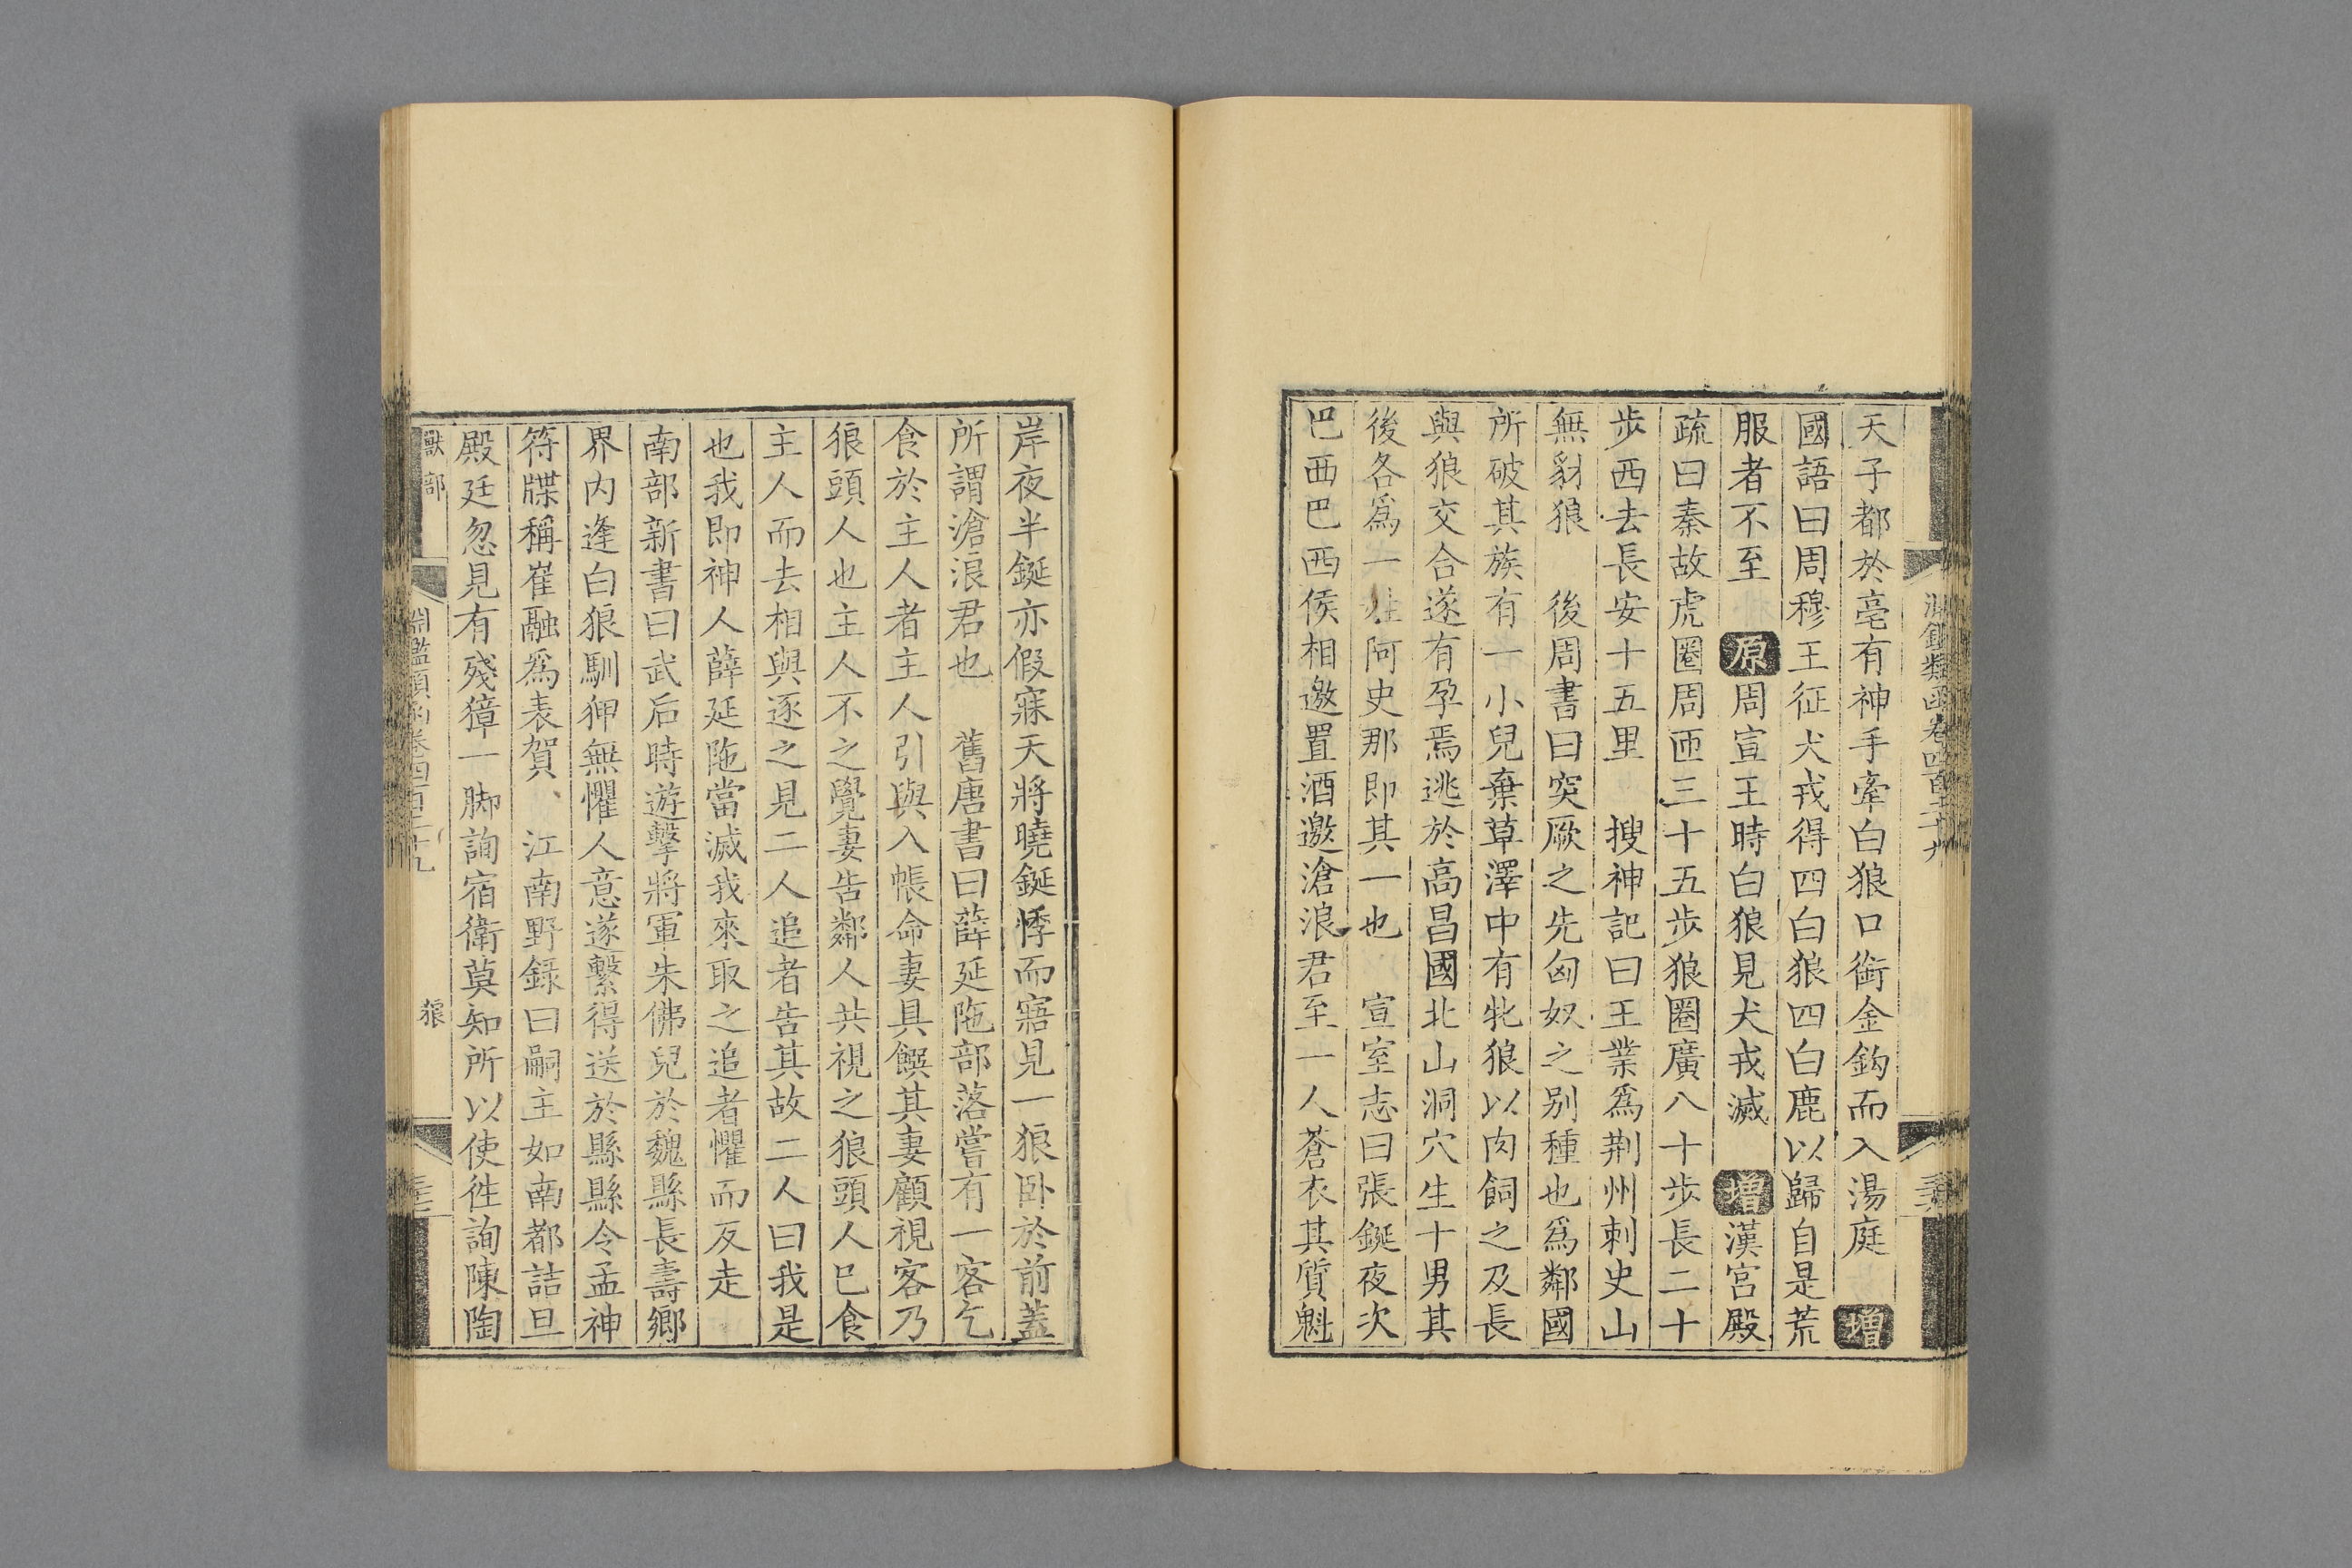 淵鑑類函卷四百二十九
天子都於亳有神手牽白狼口銜金鈎而入湯庭 增
國語曰周穆王征犬戎得四白狼四白鹿以歸自是荒
服者不至 原 周宣王時白狼見犬戎滅 增 漢宮殿
疏曰秦故虎圈周匝三十五步狼圈廣八十步長二十
步西去長安十五里 搜神記曰王業爲荆州刺史山
無豺狼 後周書曰突厥之先匈奴之别種也爲鄰國
所破其族有一小兒棄草澤中有牝狼以肉飼之及長
與狼交合遂有孕焉逃於高昌國北山洞穴生十男其
後各爲一姓阿史那即其一也 宣室志曰張鋋夜次
巴西巴西侯相邀置酒邀滄浪君至一人蒼衣其質魁
岸夜半鋋亦假寐天將曉鋋悸而寤見一狼卧於前蓋
所謂滄浪君也 舊唐書曰薛延陁部落嘗有一客乞
食於主人者主人引與入帳命妻具饌其妻顧視客乃
狼頭人也主人不之覺妻告鄰人共視之狼頭人已食
主人而去相與逐之見二人追者告其故二人曰我是
也我即神人薛延陁當滅我來取之追者懼而反走
南部新書曰武后時遊擊將軍朱佛兒於魏縣長壽鄉
界内逢白狼馴狎無懼人意遂繫得送於縣縣令孟神
符牒稱崔融爲表賀、江南野録曰嗣主如南都詰旦
殿廷忽見有殘獐一脚詢宿衛莫知所以使徃詢陳陶
獸部
淵鑑類函卷四百二十九
狼